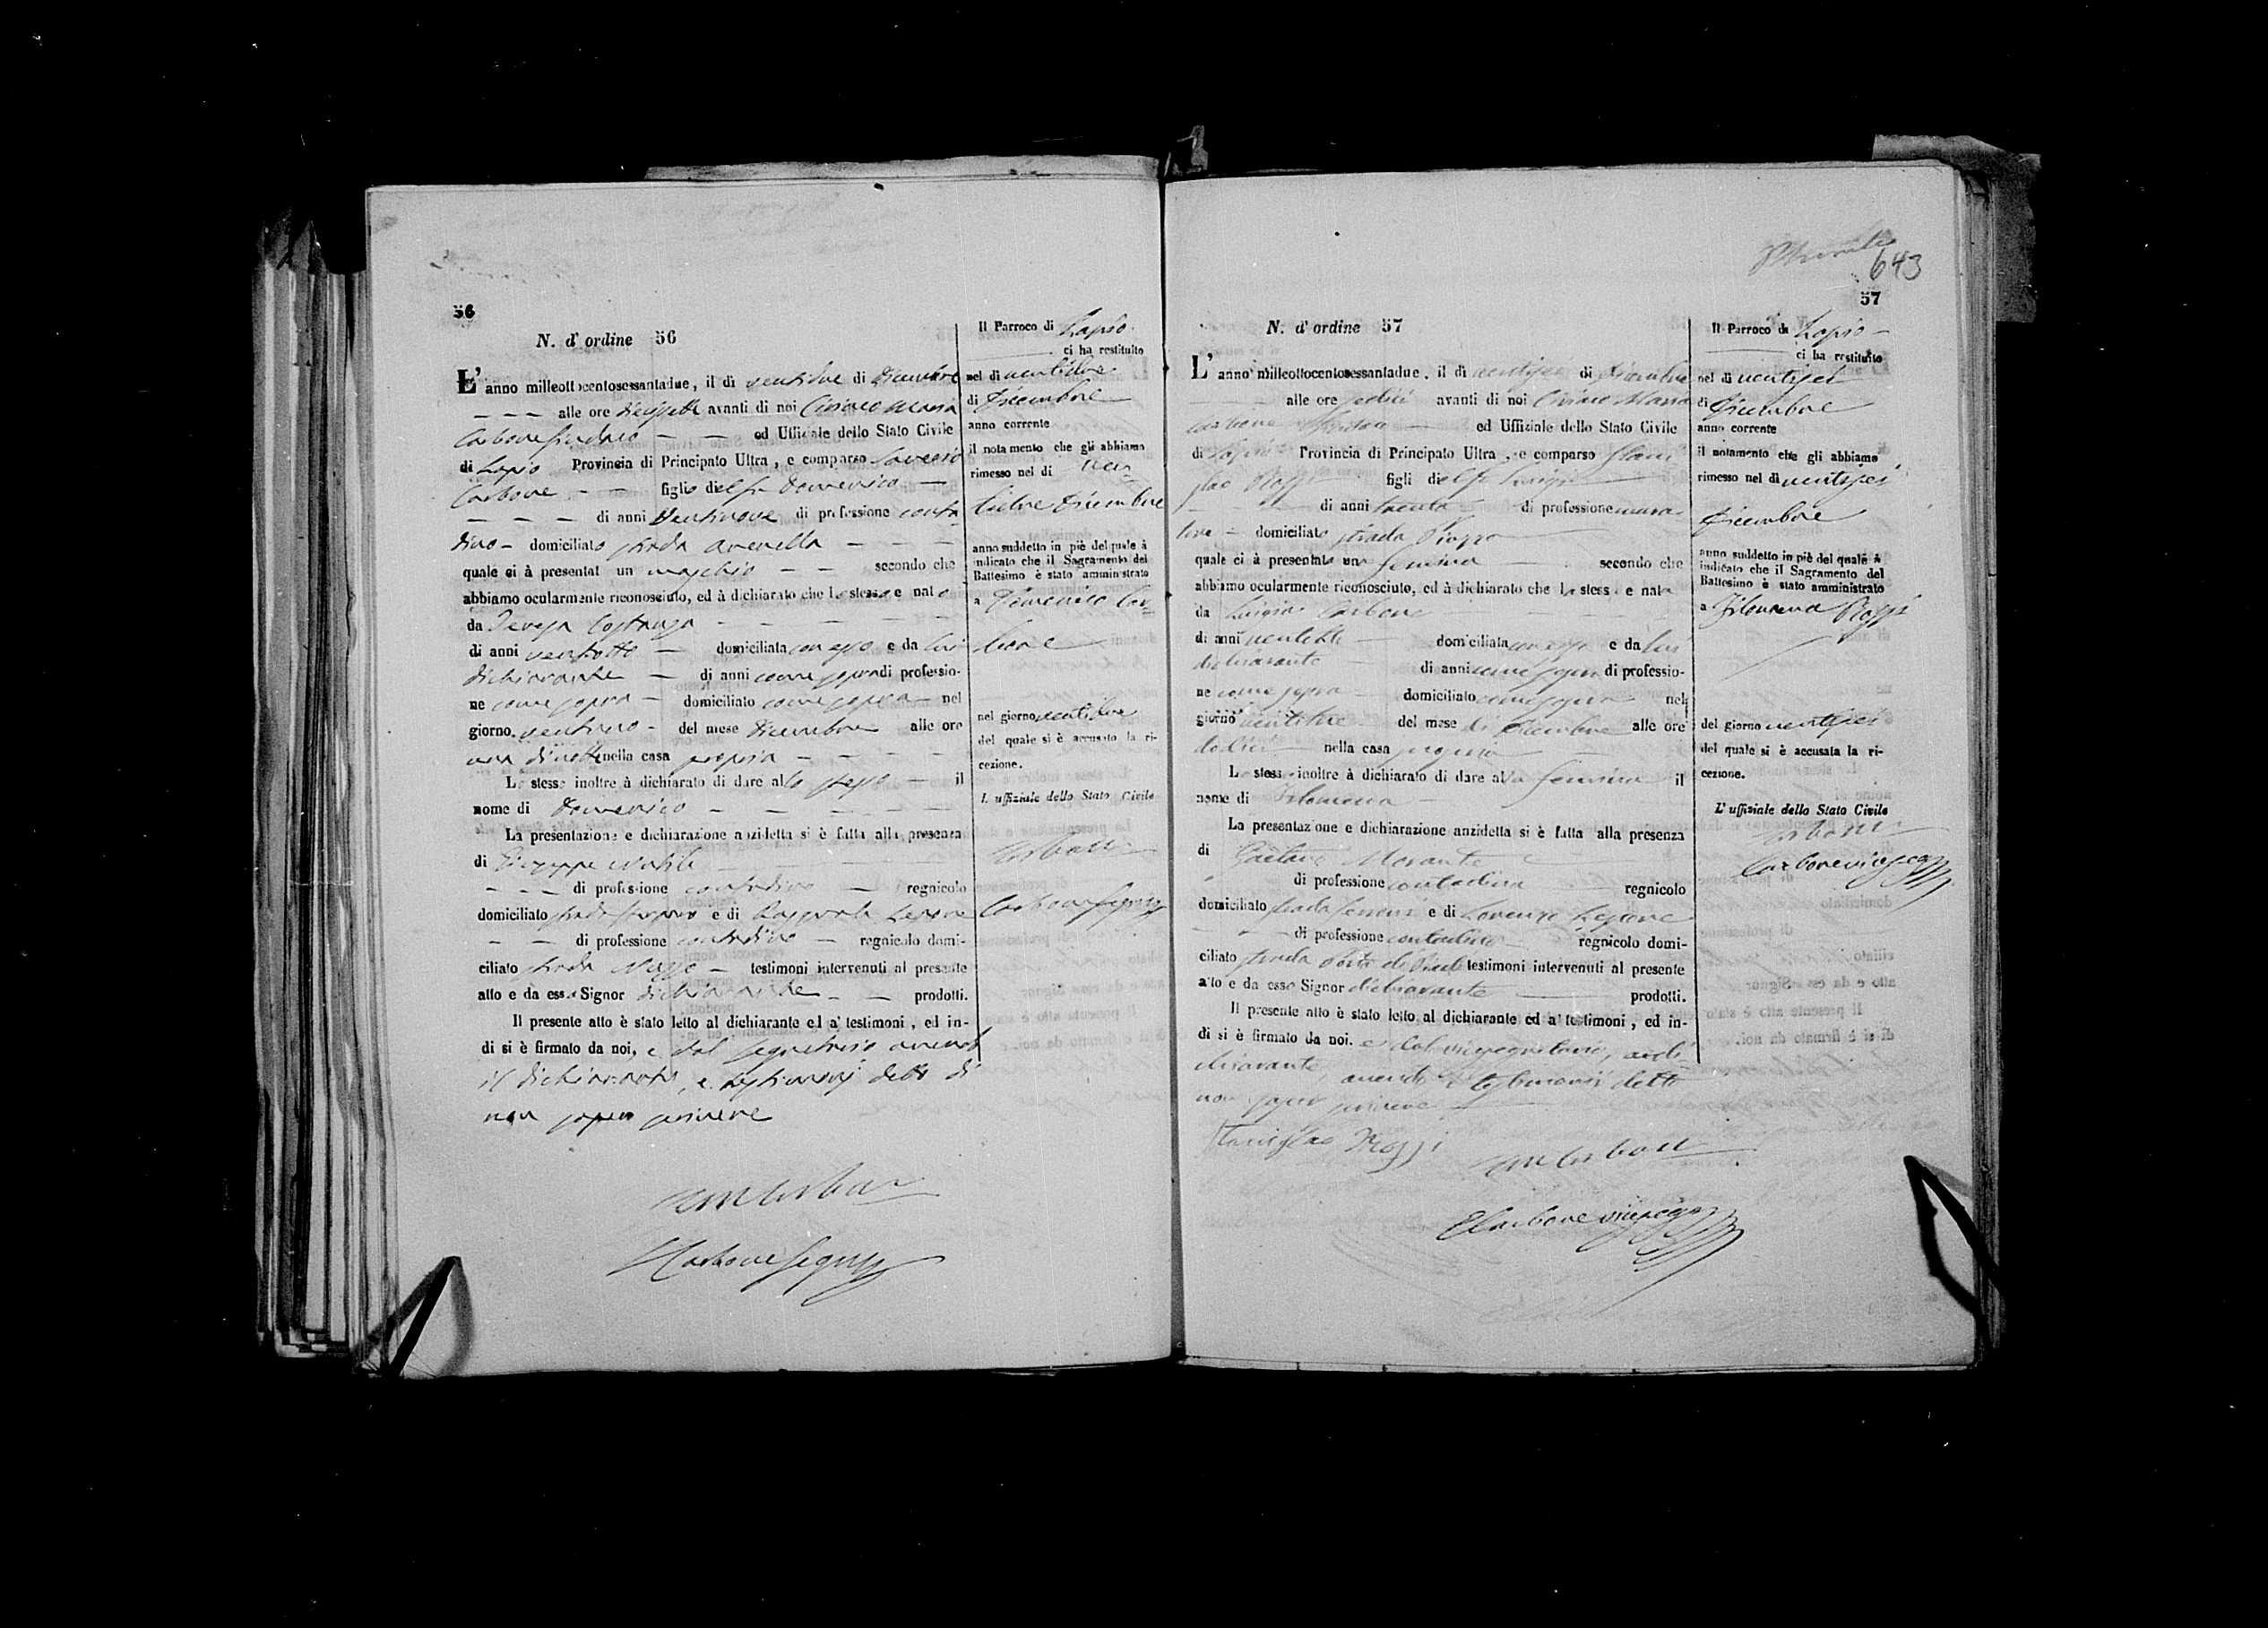 56
N. d' ordine 56
L' anno milleottocentosessantadue, il di ventidue di Dicembre
alle ore diecisette avanti di noi Ciriaco Maria
Carbone Sindaco ed Ufficiale dello Stato Civile
di Lapio Provincia di Principato Ultra, e comparso Saverio
Carbone figlio del fu Domenico
di anni Ventinove di professione conta
dino domiciliato strada
quale ci à presentat un maschio secondo che
abbiamo ocularmente riconosciuto, ed à dichiarato che lo stesso e nato
da Teresa Costanza
di anni ventotto domiciliata con esso e da lui
dichiarante di anni come sopra di professio-
ne come sopra domiciliato come sopra nel
giorno ventuno del mese Dicembre alle ore
una di notte nella casa propria
Lo stesso inoltre à dichiarato di dare allo stesso il
nome di Domenico
La presentazione e dichiarazione anzidetta si è fatta alla presenza
di Giuseppe
di professione contadino regnicolo
domiciliato strada e di Pasquale
di professione contadino regnicolo domi-
ciliato strada testimoni intervenuti al presente
atto e da esso Signor dichiarante prodotti.
Il presente atto è stato letto al dichiarante ed a' testimoni, ed in-
di si è firmato da noi, e dal segretario avendo
il dichiarante, e testimonj detto di
non saper scrivere
Carbone
Carbone Segr
Il Parroco di Lapio
ci ha restituito
nel di ventidue
di Dicembre
anno corrente
il notamento che gli abbiamo
rimesso nel di ven
tidue Dicembre
anno suddetto in piè del quale à
indicato che il Sagramento del
Battesimo è stato amministrato
a Domenico Car
bone
nel giorno ventidue
del quale si è accusato la ri-
cezione.
L' uffiziale dello Stato Civile
Carbone
Carbone Segr
643
57
N. d' ordine 57
L' anno milleottocentosessantadue, il di ventisei di Dicembre
alle ore sedici avanti di noi Ciriaco Maria
Carbone Sindaco ed Uffiziale dello Stato Civile
di Lapio Provincia di Principato Ultra, e comparso Stani
slao Rossi figli del fu Luigi
di anni trenta di professione mura
tore domiciliato strada Piazza
quale ci à presentato una femina secondo che
abbiamo ocularmente riconosciuto, ed à dichiarato che la stess e nata
da Luigia Carbone
di anni domiciliata con esso e da lui
dichiarante di anni come sopra di professio-
ne come sopra domiciliato come sopra nel
giorno del mese di Dicembre alle ore
dodici nella casa propria
Lo stess inoltre à dichiarato di dare alla femina il
nome di Filomena
La presentazione e dichiarazione anzidetta si è fatta alla presenza
di Gaetano Morante
di professione contadino regnicolo
domiciliato strada e di Lorenzo
di professione contadino regnicolo domi-
ciliato strada testimoni intervenuti al presente
atto e da esso Signor dichiarante prodotti.
Il presente atto è stato letto al dichiarante ed a' testimoni, ed in-
di si è firmato da noi, e dal vicesegretario, e di-
chiarante, avendo i testimonj detto
non saper scrivere
Stanislao Rossi
Carbone
Carbone vicesegr
Il Parroco di Lapio
ci ha restituito
nel di ventisei
di Dicembre
anno corrente
il notamento che gli abbiamo
rimesso nel di ventisei
Dicembre
anno suddetto in piè del quale à
indicato che il Sagramento del
Battesimo è stato amministrato
a Filomena Rossi
del giorno ventisei
del quale si è accusata la ri-
cezione.
L' uffiziale dello Stato Civile
Carbone
Carbone vicesegr